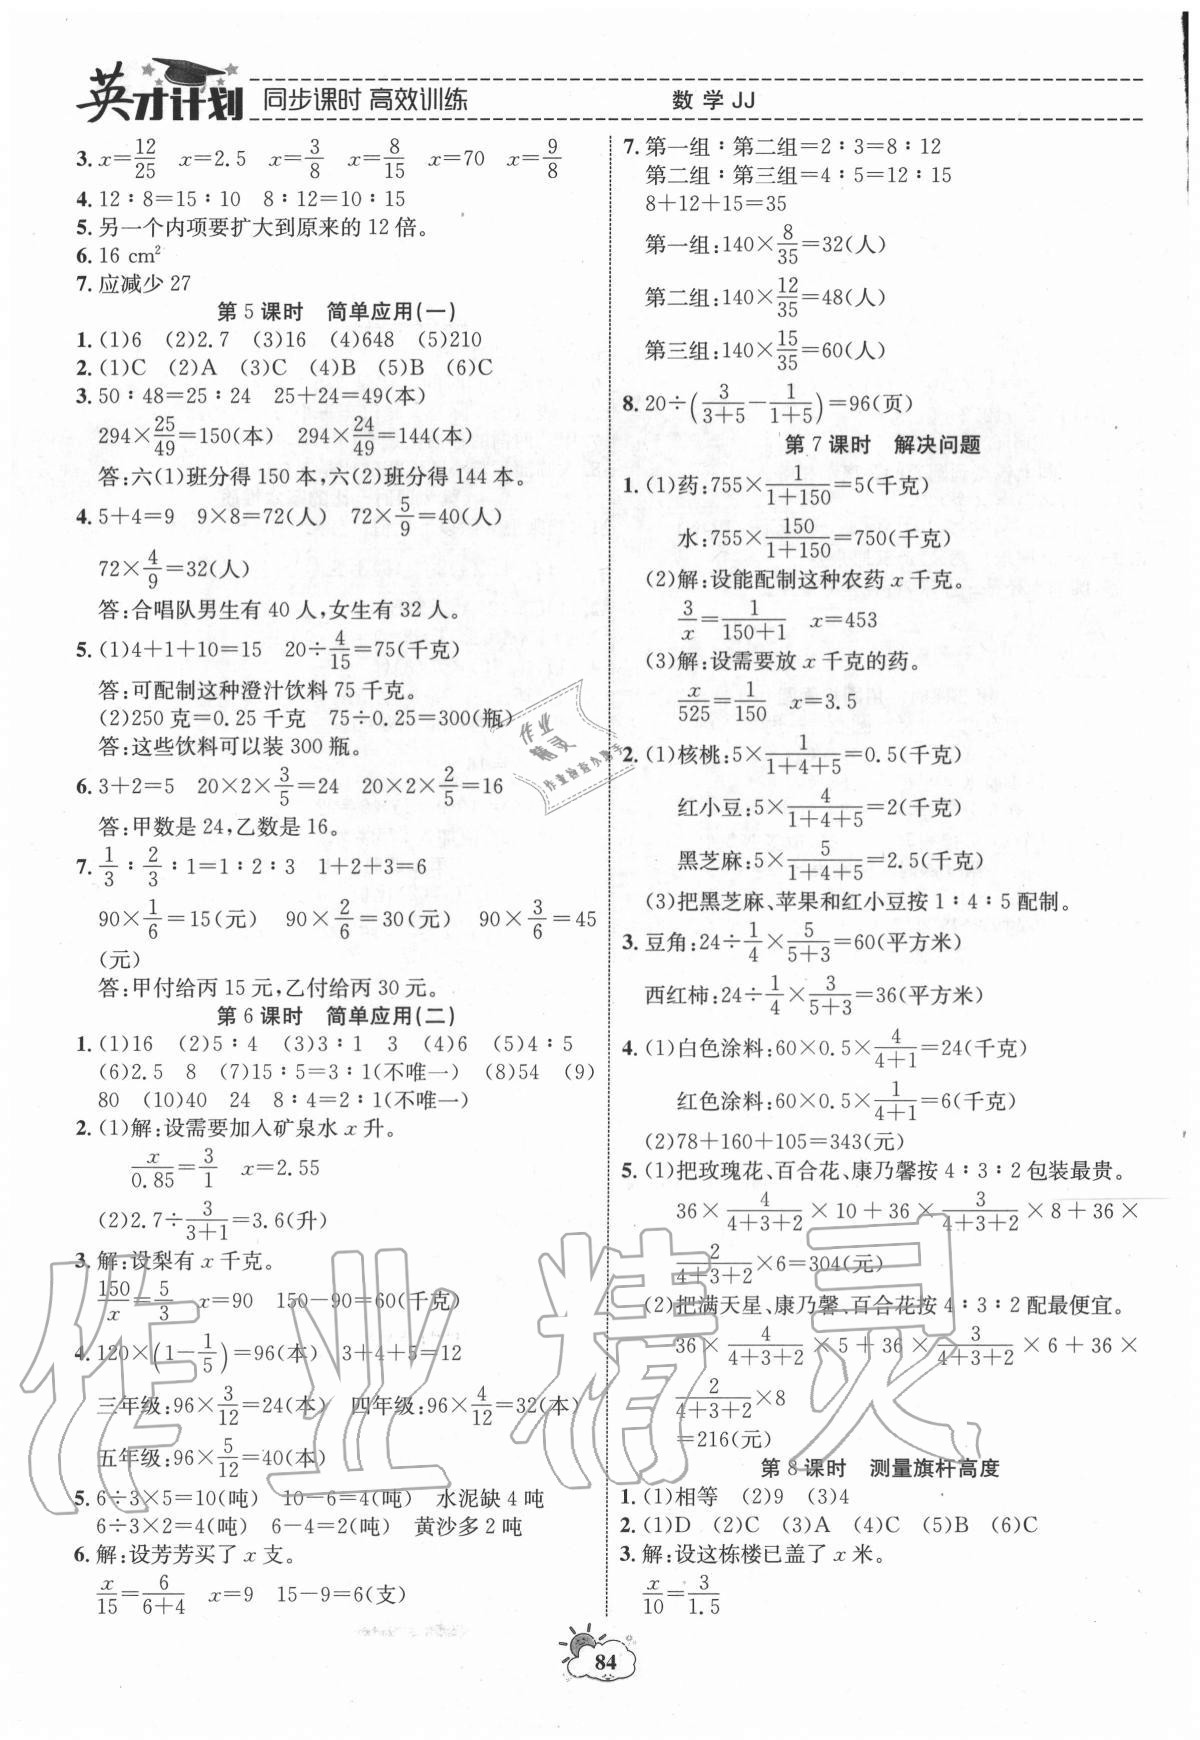 英才计划 同步课时 高效训练 数学 JJ
3. x=12/25 x=2.5 x=3/8 x=8/15 x=70 x=9/8
4. 12∶8=15∶10 8∶12=10∶15
5. 另一个内项要扩大到原来的 12 倍。
6. 16 cm²
7. 应减少 27
第 5 课时 简单应用(一)
1. (1)6 (2)2.7 (3)16 (4)648 (5)210
2. (1)C (2)A (3)C (4)B (5)B (6)C
3. 50∶48=25∶24 25+24=49(本)
294×25/49=150(本) 294×24/49=144(本)
答:六(1)班分得 150 本,六(2)班分得 144 本。
4. 5+4=9 9×8=72(人) 72×5/9=40(人)
72×4/9=32(人)
答:合唱队男生有 40 人,女生有 32 人。
5. (1)4+1+10=15 20÷4/15=75(千克)
答:可配制这种澄汁饮料 75 千克。
(2)250 克=0.25 千克 75÷0.25=300(瓶)
答:这些饮料可以装 300 瓶。
6. 3+2=5 20×2×3/5=24 20×2×2/5=16
答:甲数是 24,乙数是 16。
7. 1/3∶2/3∶1=1∶2∶3 1+2+3=6
90×1/6=15(元) 90×2/6=30(元) 90×3/6=45
(元)
答:甲付给丙 15 元,乙付给丙 30 元。
第 6 课时 简单应用(二)
1. (1)16 (2)5∶4 (3)3∶1 3 (4)6 (5)4∶5
(6)2.5 8 (7)15∶5=3∶1(不唯一) (8)54 (9)
80 (10)40 24 8∶4=2∶1(不唯一)
2. (1)解:设需要加入矿泉水 x 升。
x/0.85=3/1 x=2.55
(2)2.7÷3/(3+1)=3.6(升)
3. 解:设梨有 x 千克。
150/x=5/3 x=90 150-90=60(千克)
4. 120×(1-1/5)=96(本) 3+4+5=12
三年级:96×3/12=24(本) 四年级:96×4/12=32(本)
五年级:96×5/12=40(本)
5. 6÷3×5=10(吨) 10-6=4(吨) 水泥缺 4 吨
6÷3×2=4(吨) 6-4=2(吨) 黄沙多 2 吨
6. 解:设芳芳买了 x 支。
x/15=6/(6+4) x=9 15-9=6(支)
7. 第一组∶第二组=2∶3=8∶12
第二组∶第三组=4∶5=12∶15
8+12+15=35
第一组:140×8/35=32(人)
第二组:140×12/35=48(人)
第三组:140×15/35=60(人)
8. 20÷(3/(3+5)-1/(1+5))=96(页)
第 7 课时 解决问题
1. (1)药:755×1/(1+150)=5(千克)
水:755×150/(1+150)=750(千克)
(2)解:设能配制这种农药 x 千克。
3/x=1/(150+1) x=453
(3)解:设需要放 x 千克的药。
x/525=1/150 x=3.5
2. (1)核桃:5×1/(1+4+5)=0.5(千克)
红小豆:5×4/(1+4+5)=2(千克)
黑芝麻:5×5/(1+4+5)=2.5(千克)
(3)把黑芝麻、苹果和红小豆按 1∶4∶5 配制。
3. 豆角:24÷1/4×5/(5+3)=60(平方米)
西红柿:24÷1/4×3/(5+3)=36(平方米)
4. (1)白色涂料:60×0.5×4/(4+1)=24(千克)
红色涂料:60×0.5×1/(4+1)=6(千克)
(2)78+160+105=343(元)
5. (1)把玫瑰花、百合花、康乃馨按 4∶3∶2 包装最贵。
36×4/(4+3+2)×10+36×3/(4+3+2)×8+36×
2/(4+3+2)×6=304(元)
(2)把满天星、康乃馨、百合花按 4∶3∶2 配最便宜。
36×4/(4+3+2)×5+36×3/(4+3+2)×6+36×
2/(4+3+2)×8
=216(元)
第 8 课时 测量旗杆高度
1. (1)相等 (2)9 (3)4
2. (1)D (2)C (3)A (4)C (5)B (6)C
3. 解:设这栋楼已盖了 x 米。
x/10=3/1.5
84
作业精灵
作业
精灵